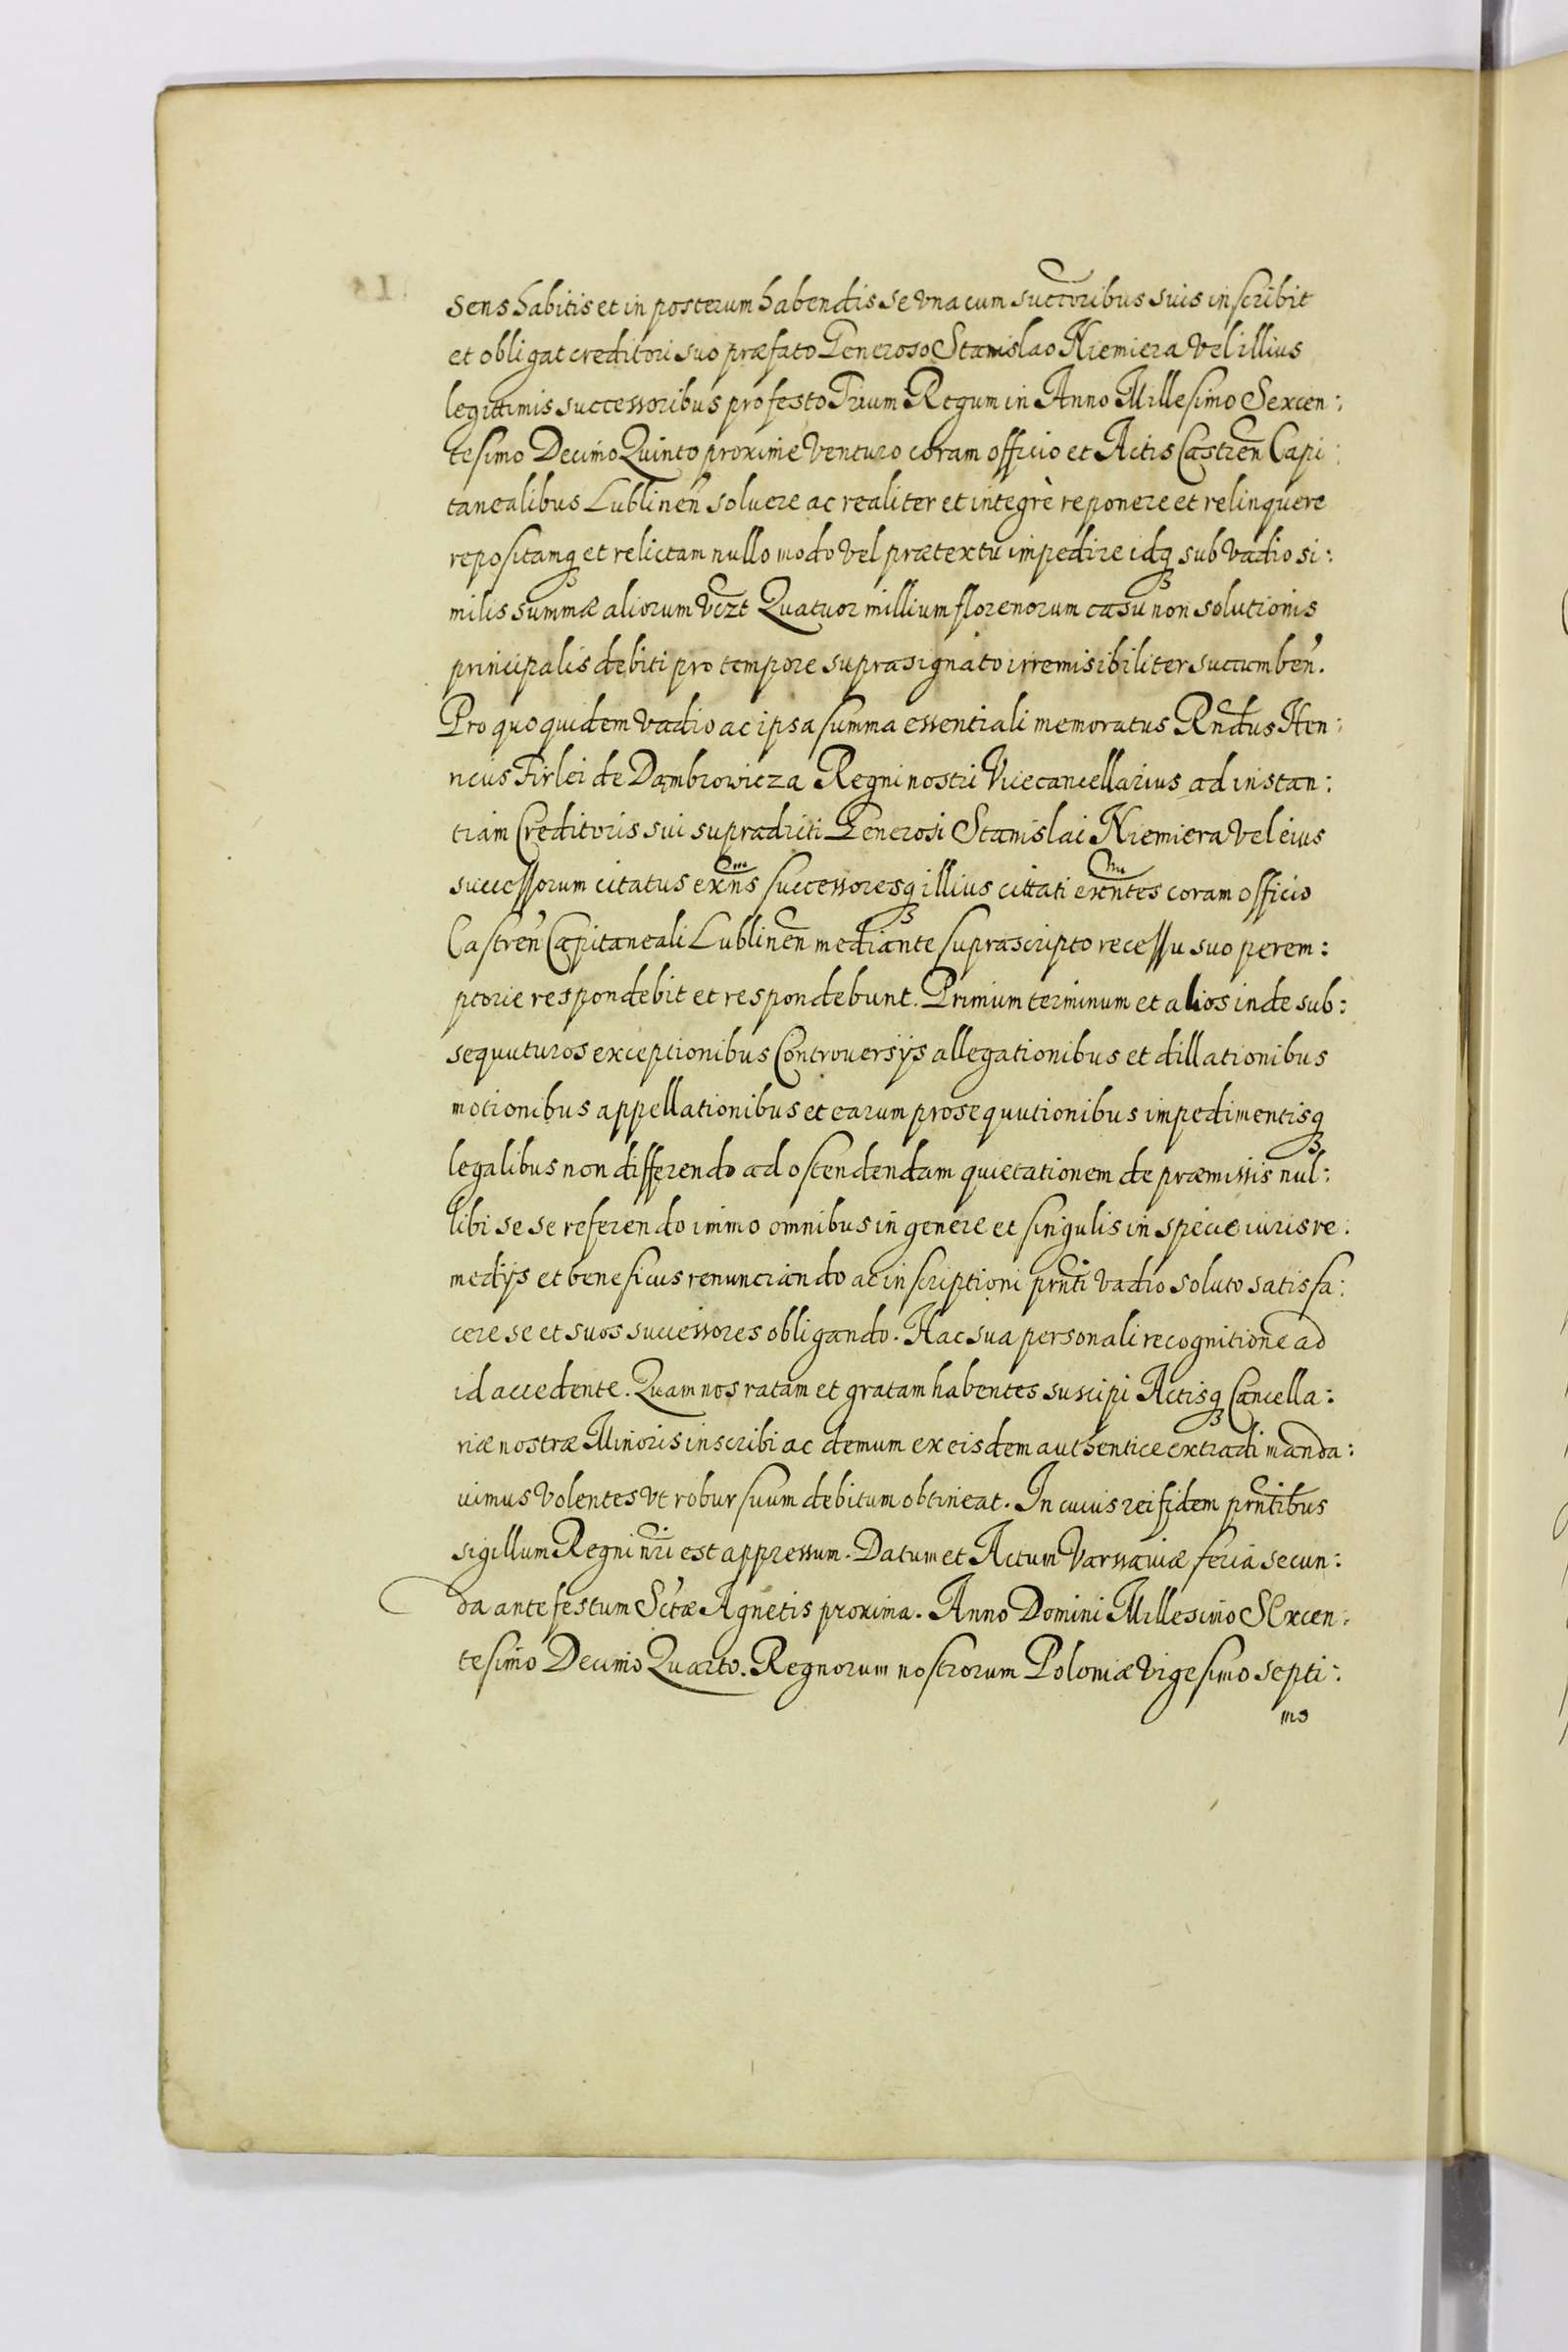 sens habitis et in posterum habendis se vna cum succoribus suis inscribit
et obligat creditori suo præfato Generoso Stanislao Niemiera vel illius
legittimis successoribus pro festo Trium Regum in Anno Millesimo Sexcen:
tesimo Decimo Quinto proxime venturo coram officio et Actis Castren Capi:
tanealibus Lublinen soluere ac realiter et integrè reponere et relinquere
repositamq et relictam nullo modo vel prætextu impedire idq sub vadio si:
milis summæ aliorum vczt Quatuor millium florenorum casu non solutionis
principalis debiti pro tempore suprasignato irremisibiliter succumben.
Pro quo quidem vadio ac ipsa summa essentiali memoratus Rndus Hen:
ricus Firlei de Dąmbrowicza Regni nostri Vicecancellarius ad instan:
tiam Creditoris sui supradicti Generosi Stanislai Niemiera vel eius
successorum citatus exns successoresq illius cittati exentes coram officio
Castren Capitaneali Lublinen mediante suprascripto recessu suo perem:
ptorie respondebit et respondebunt. Primum terminum et alios inde sub:
sequuturos exceptionibus Controuersijs allegationibus et dillationibus
motionibus appellationibus et earum prosequutionibus impedimentisq
legalibus non differendo ad ostendendam quietationem de præmissis nul:
libi se se referendo immo omnibus in genere et singulis in specie iuris re:
medijs et beneficus renunciando ac inscriptioni prnti vadio soluto satisfa:
cere se et suos successores obligando. Hac sua personali recognitione ad
id accedente. Quam nos ratam et gratam habentes suscipi Actisq Cancella:
riæ nostræ Minoris inscribi ac demum ex eisdem authentice extradi manda:
uimus volentes vt robur suum debitum obtineat. In cuius rei fidem prntibus
sigillum Regni nri est appressum. Datum et Actum Varssauiæ feria secun:
da ante festum Sctæ Agnetis proxima. Anno Domini Millesimo SExcen:
tesimo Decimo Quarto. Regnorum nostrorum Poloniæ vigesimo septi:
mo